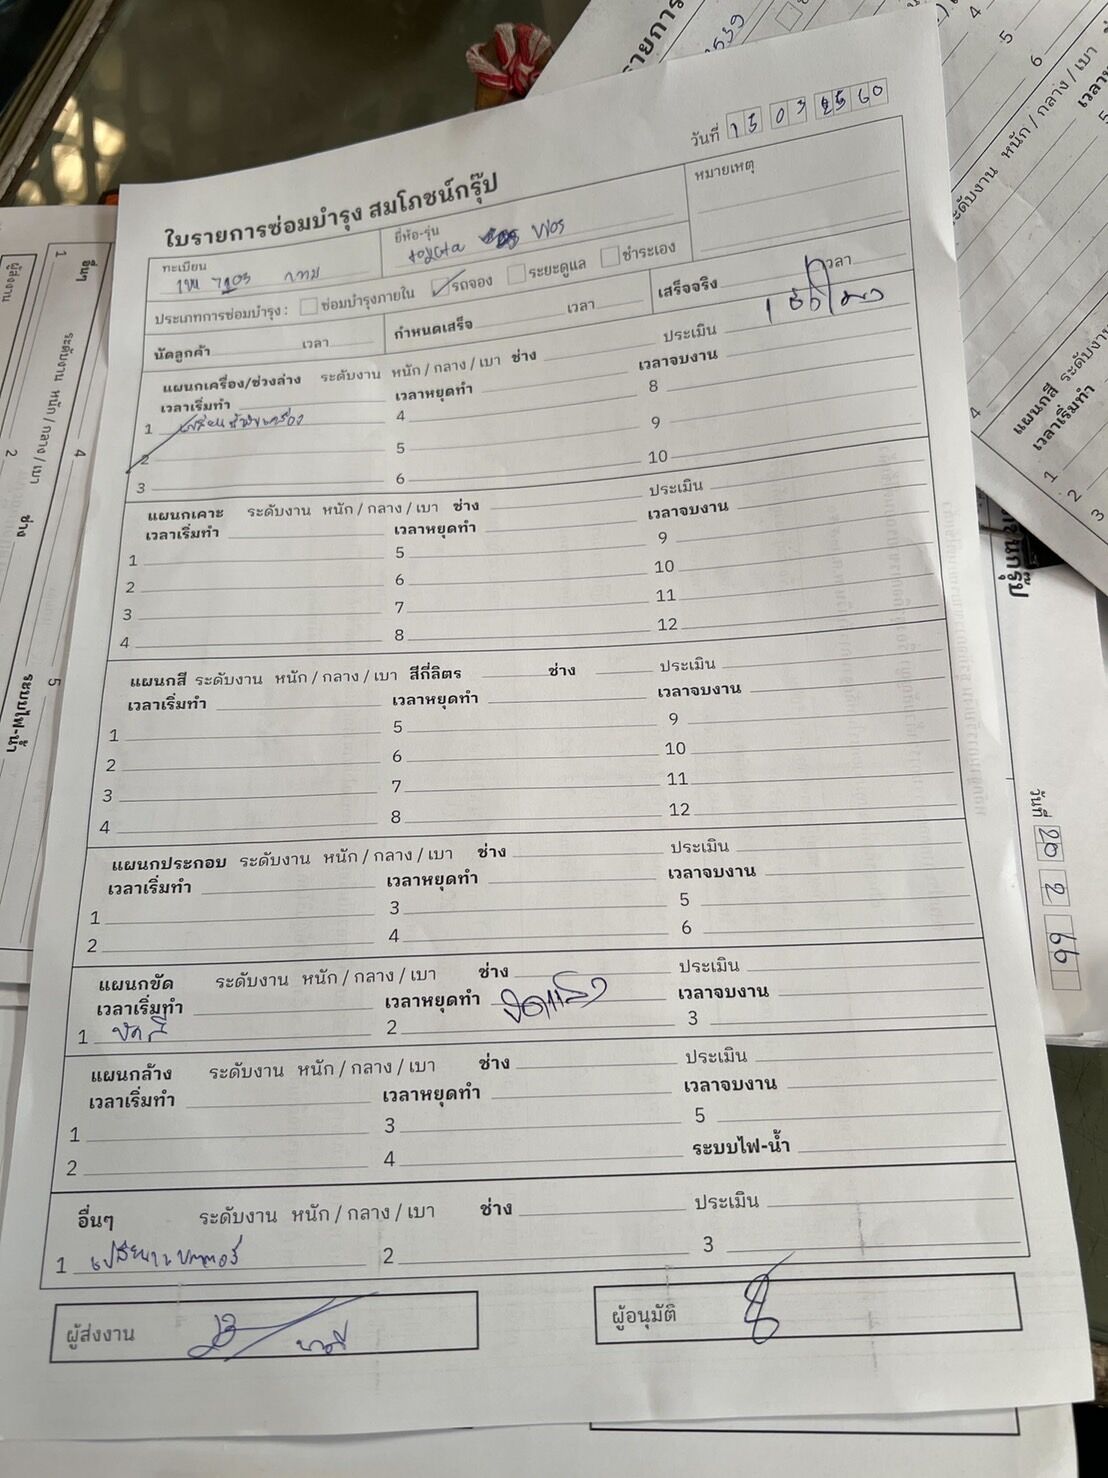 วันที่ 15 03 2560
ใบรายการซ่อมบำรุง สมโภชน์กรุ๊ป
ทะเบียน
ยี่ห้อ-รุ่น
หมายเหตุ
7203 กทม
toyota vios
ประเภทการซ่อมบำรุง : ซ่อมบำรุงภายใน รถจอง ระยะดูแล ชำระเอง
นัดลูกค้า เวลา กำหนดเสร็จ เวลา เสร็จจริง เวลา
แผนกเครื่อง/ช่วงล่าง ระดับงาน หนัก / กลาง / เบา ช่าง ประเมิน
เวลาเริ่มทำ เวลาหยุดทำ เวลาจบงาน
1 4 8
2 5 9
3 6 10
แผนกเคาะ ระดับงาน หนัก / กลาง / เบา ช่าง ประเมิน
เวลาเริ่มทำ เวลาหยุดทำ เวลาจบงาน
1 5 9
2 6 10
3 7 11
4 8 12
แผนกสี ระดับงาน หนัก / กลาง / เบา สีกี่ลิตร ช่าง ประเมิน
เวลาเริ่มทำ เวลาหยุดทำ เวลาจบงาน
1 5 9
2 6 10
3 7 11
4 8 12
แผนกประกอบ ระดับงาน หนัก / กลาง / เบา ช่าง ประเมิน
เวลาเริ่มทำ เวลาหยุดทำ เวลาจบงาน
1 3 5
2 4 6
แผนกขัด ระดับงาน หนัก / กลาง / เบา ช่าง ประเมิน
เวลาเริ่มทำ เวลาหยุดทำ เวลาจบงาน
1 ขัดสี 2 3
แผนกล้าง ระดับงาน หนัก / กลาง / เบา ช่าง ประเมิน
เวลาเริ่มทำ เวลาหยุดทำ เวลาจบงาน
1 3 5
2 4 ระบบไฟ-น้ำ
อื่นๆ ระดับงาน หนัก / กลาง / เบา ช่าง ประเมิน
1 2 3
ผู้ส่งงาน
ผู้อนุมัติ
วันที่ 20 2 66